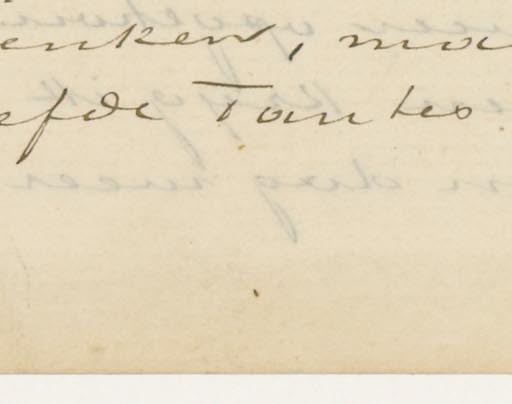 enken, ma
efde Tantes